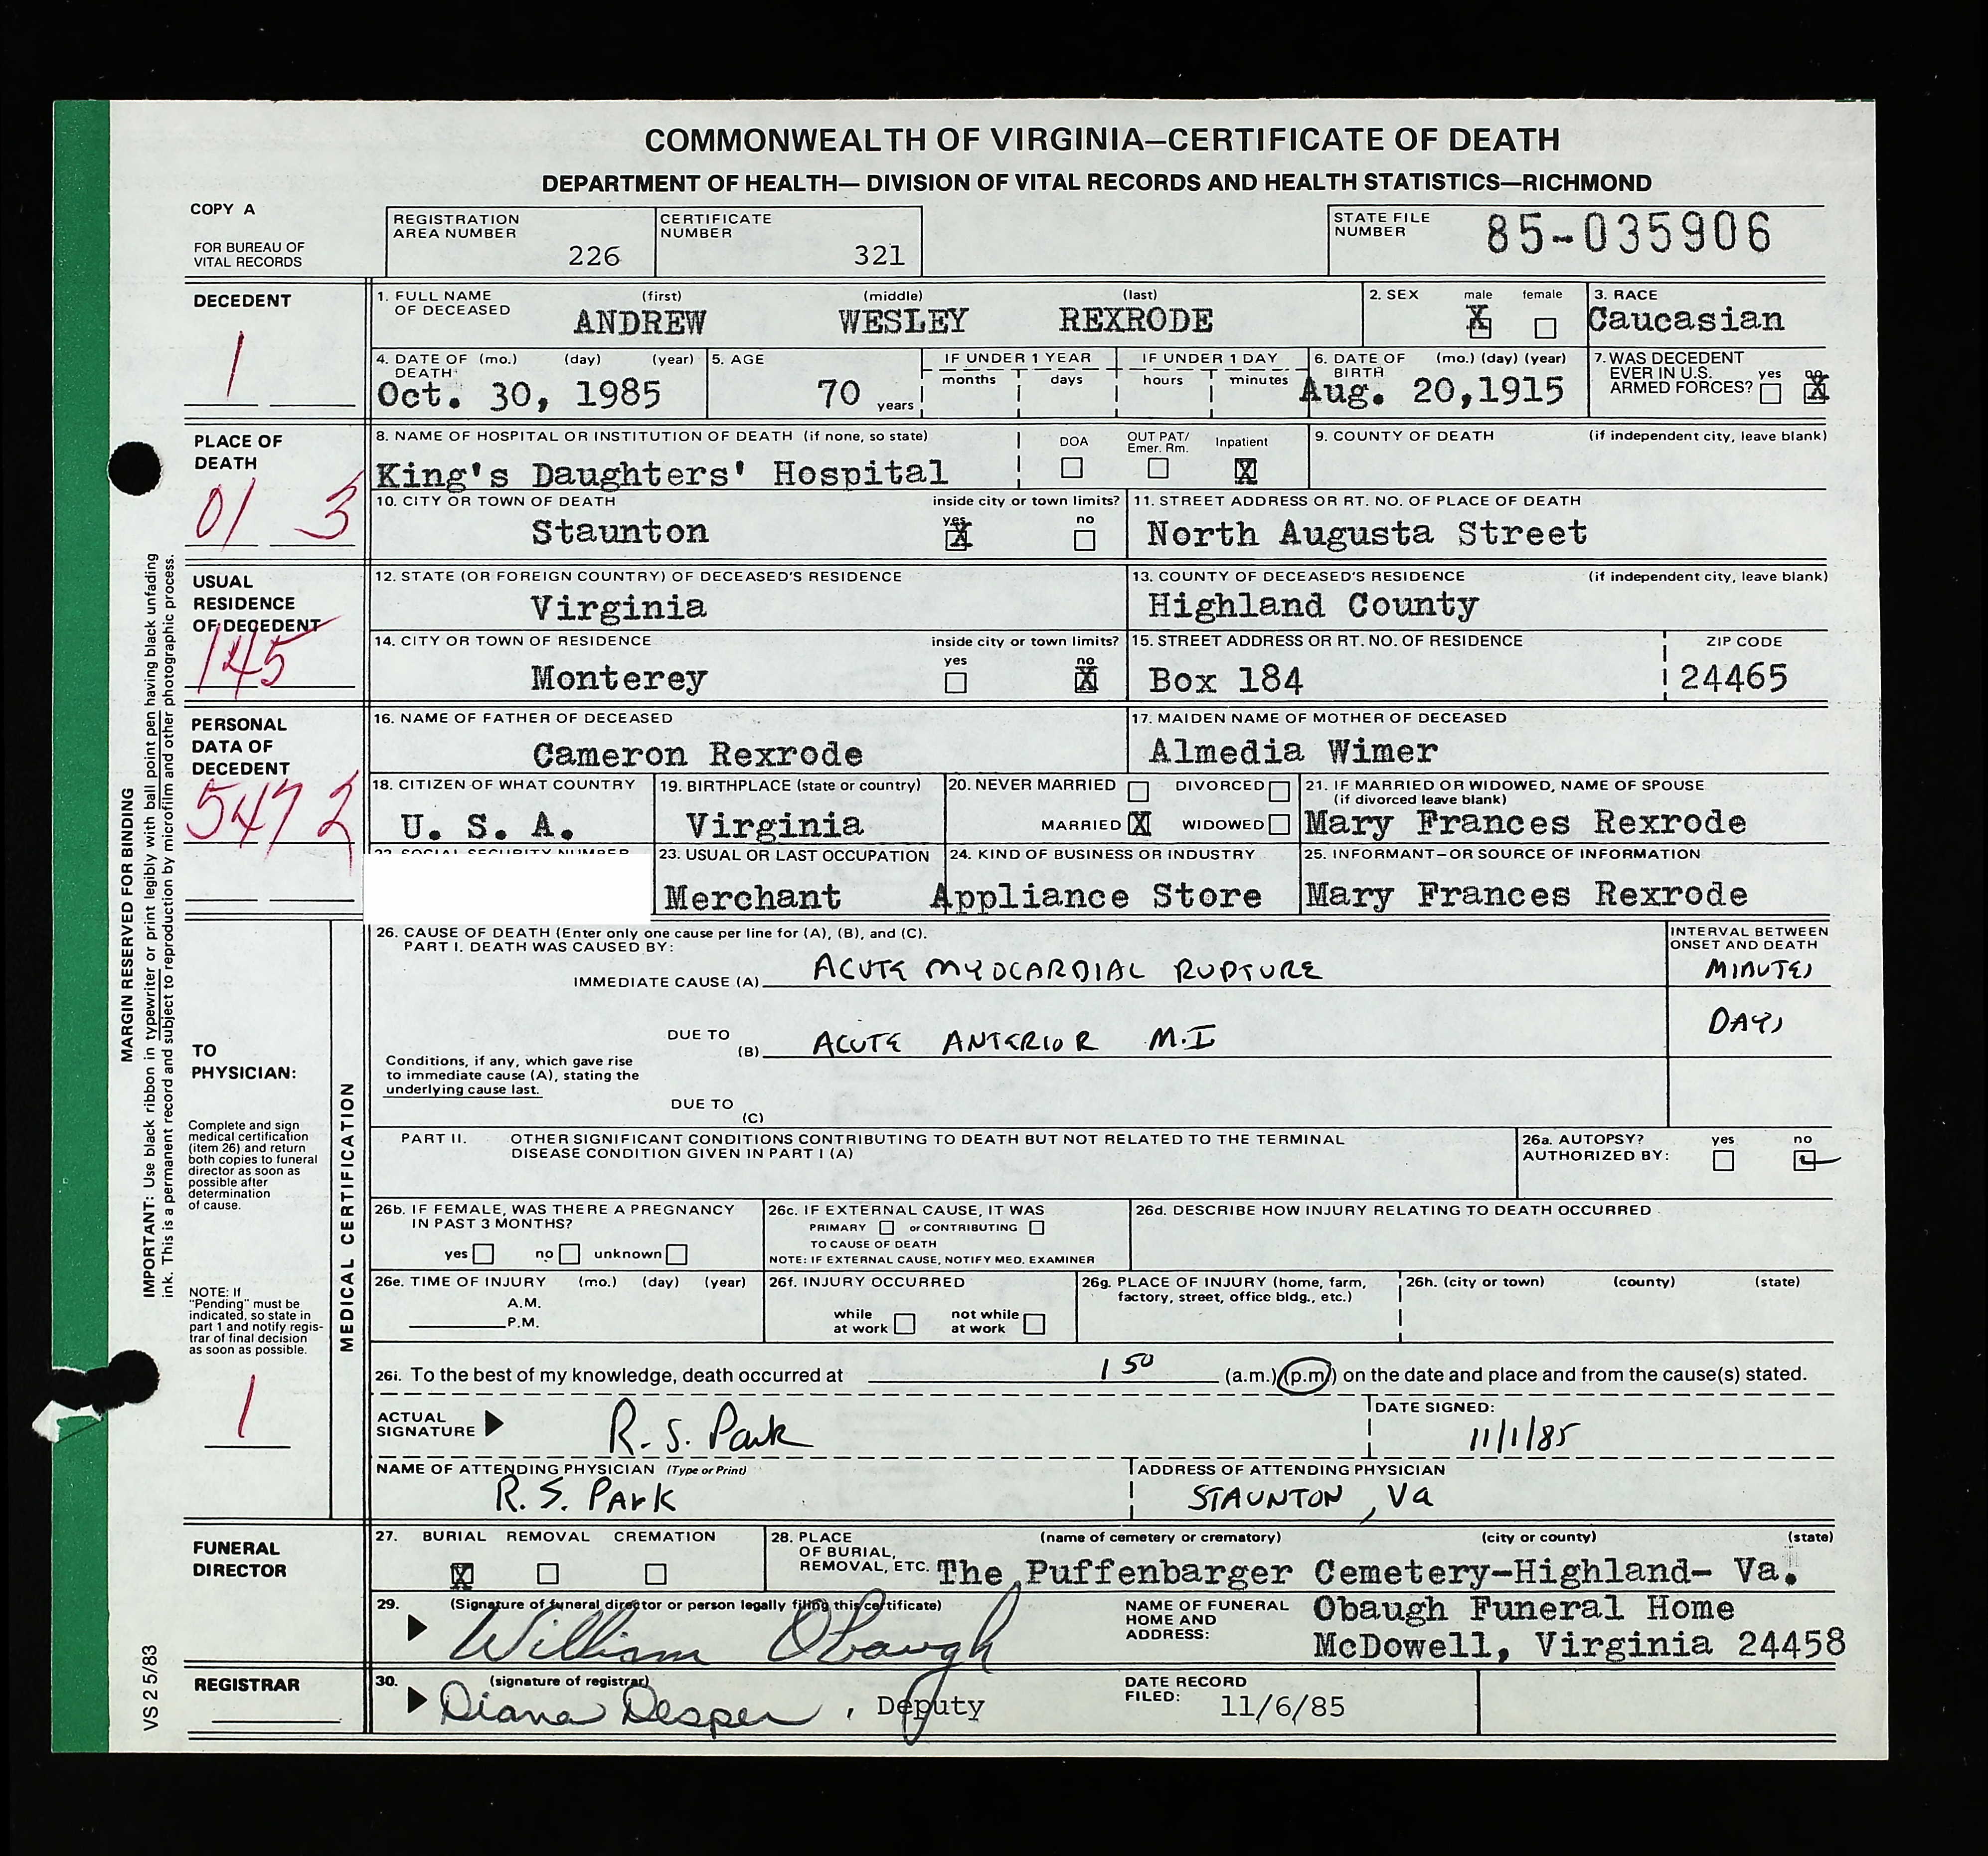 COMMONWEALTH OF VIRGINIA—CERTIFICATE OF DEATH
DEPARTMENT OF HEALTH— DIVISION OF VITAL RECORDS AND HEALTH STATISTICS—RICHMOND
COPY A
FOR BUREAU OF
VITAL RECORDS
REGISTRATION
AREA NUMBER
226
CERTIFICATE
NUMBER
321
STATE FILE
NUMBER
85-035906
DECEDENT
1
1. FULL NAME
OF DECEASED
(first) (middle) (last)
ANDREW WESLEY REXRODE
2. SEX male female
X
3. RACE
Caucasian
4. DATE OF (mo.) (day) (year)
DEATH
Oct. 30, 1985
5. AGE
70 years
IF UNDER 1 YEAR
months days
IF UNDER 1 DAY
hours minutes
6. DATE OF (mo.) (day) (year)
BIRTH
Aug. 20,1915
7. WAS DECEDENT
EVER IN U.S.
ARMED FORCES? yes no
X
PLACE OF
DEATH
01 3
8. NAME OF HOSPITAL OR INSTITUTION OF DEATH (if none, so state)
King's Daughters' Hospital
DOA OUT PAT/ Emer. Rm. Inpatient
X
9. COUNTY OF DEATH (if independent city, leave blank)
10. CITY OR TOWN OF DEATH inside city or town limits?
Staunton
yes no
X
11. STREET ADDRESS OR RT. NO. OF PLACE OF DEATH
North Augusta Street
USUAL
RESIDENCE
OF DECEDENT
145
12. STATE (OR FOREIGN COUNTRY) OF DECEASED'S RESIDENCE
Virginia
13. COUNTY OF DECEASED'S RESIDENCE (if independent city, leave blank)
Highland County
14. CITY OR TOWN OF RESIDENCE inside city or town limits?
Monterey
yes no
X
15. STREET ADDRESS OR RT. NO. OF RESIDENCE
Box 184
ZIP CODE
24465
PERSONAL
DATA OF
DECEDENT
547 2
16. NAME OF FATHER OF DECEASED
Cameron Rexrode
17. MAIDEN NAME OF MOTHER OF DECEASED
Almedia Wimer
18. CITIZEN OF WHAT COUNTRY
U. S. A.
19. BIRTHPLACE (state or country)
Virginia
20. NEVER MARRIED DIVORCED
MARRIED X WIDOWED
21. IF MARRIED OR WIDOWED, NAME OF SPOUSE
(if divorced leave blank)
Mary Frances Rexrode
22. SOCIAL SECURITY NUMBER
23. USUAL OR LAST OCCUPATION
Merchant
24. KIND OF BUSINESS OR INDUSTRY
Appliance Store
25. INFORMANT—OR SOURCE OF INFORMATION
Mary Frances Rexrode
MARGIN RESERVED FOR BINDING
IMPORTANT: Use black ribbon in typewriter or print legibly with ball point pen having black unfading
ink. This is a permanent record and subject to reproduction by microfilm and other photographic process.
TO
PHYSICIAN:
Complete and sign
medical certification
(item 26) and return
both copies to funeral
director as soon as
possible after
determination
of cause.
NOTE: If
"Pending" must be
indicated, so state in
part 1 and notify regis-
trar of final decision
as soon as possible.
1
MEDICAL CERTIFICATION
26. CAUSE OF DEATH (Enter only one cause per line for (A), (B), and (C).
PART I. DEATH WAS CAUSED BY:
IMMEDIATE CAUSE (A) ACUTE MYOCARDIAL RUPTURE
INTERVAL BETWEEN
ONSET AND DEATH
MINUTES
DUE TO
(B) ACUTE ANTERIOR M.I
DAYS
Conditions, if any, which gave rise
to immediate cause (A), stating the
underlying cause last.
DUE TO
(C)
PART II. OTHER SIGNIFICANT CONDITIONS CONTRIBUTING TO DEATH BUT NOT RELATED TO THE TERMINAL
DISEASE CONDITION GIVEN IN PART I (A)
26a. AUTOPSY? yes no
AUTHORIZED BY:
26b. IF FEMALE, WAS THERE A PREGNANCY
IN PAST 3 MONTHS?
yes no unknown
26c. IF EXTERNAL CAUSE, IT WAS
PRIMARY or CONTRIBUTING
TO CAUSE OF DEATH
NOTE: IF EXTERNAL CAUSE, NOTIFY MED. EXAMINER
26d. DESCRIBE HOW INJURY RELATING TO DEATH OCCURRED
26e. TIME OF INJURY (mo.) (day) (year)
A.M.
P.M.
26f. INJURY OCCURRED
while at work not while at work
26g. PLACE OF INJURY (home, farm,
factory, street, office bldg., etc.)
26h. (city or town) (county) (state)
26i. To the best of my knowledge, death occurred at 1 50 (a.m.) (p.m) on the date and place and from the cause(s) stated.
ACTUAL
SIGNATURE
R. S. Park
DATE SIGNED:
11/1/85
NAME OF ATTENDING PHYSICIAN (Type or Print)
R. S. PArK
ADDRESS OF ATTENDING PHYSICIAN
STAUNTON, Va
FUNERAL
DIRECTOR
27. BURIAL REMOVAL CREMATION
X
28. PLACE
OF BURIAL,
REMOVAL, ETC.
(name of cemetery or crematory) (city or county) (state)
The Puffenbarger Cemetery-Highland- Va.
29. (Signature of funeral director or person legally filing this certificate)
William Obaugh
NAME OF FUNERAL
HOME AND
ADDRESS:
Obaugh Funeral Home
McDowell, Virginia 24458
REGISTRAR
30. (signature of registrar)
Diana Desper, Deputy
DATE RECORD
FILED:
11/6/85
VS 2 5/83